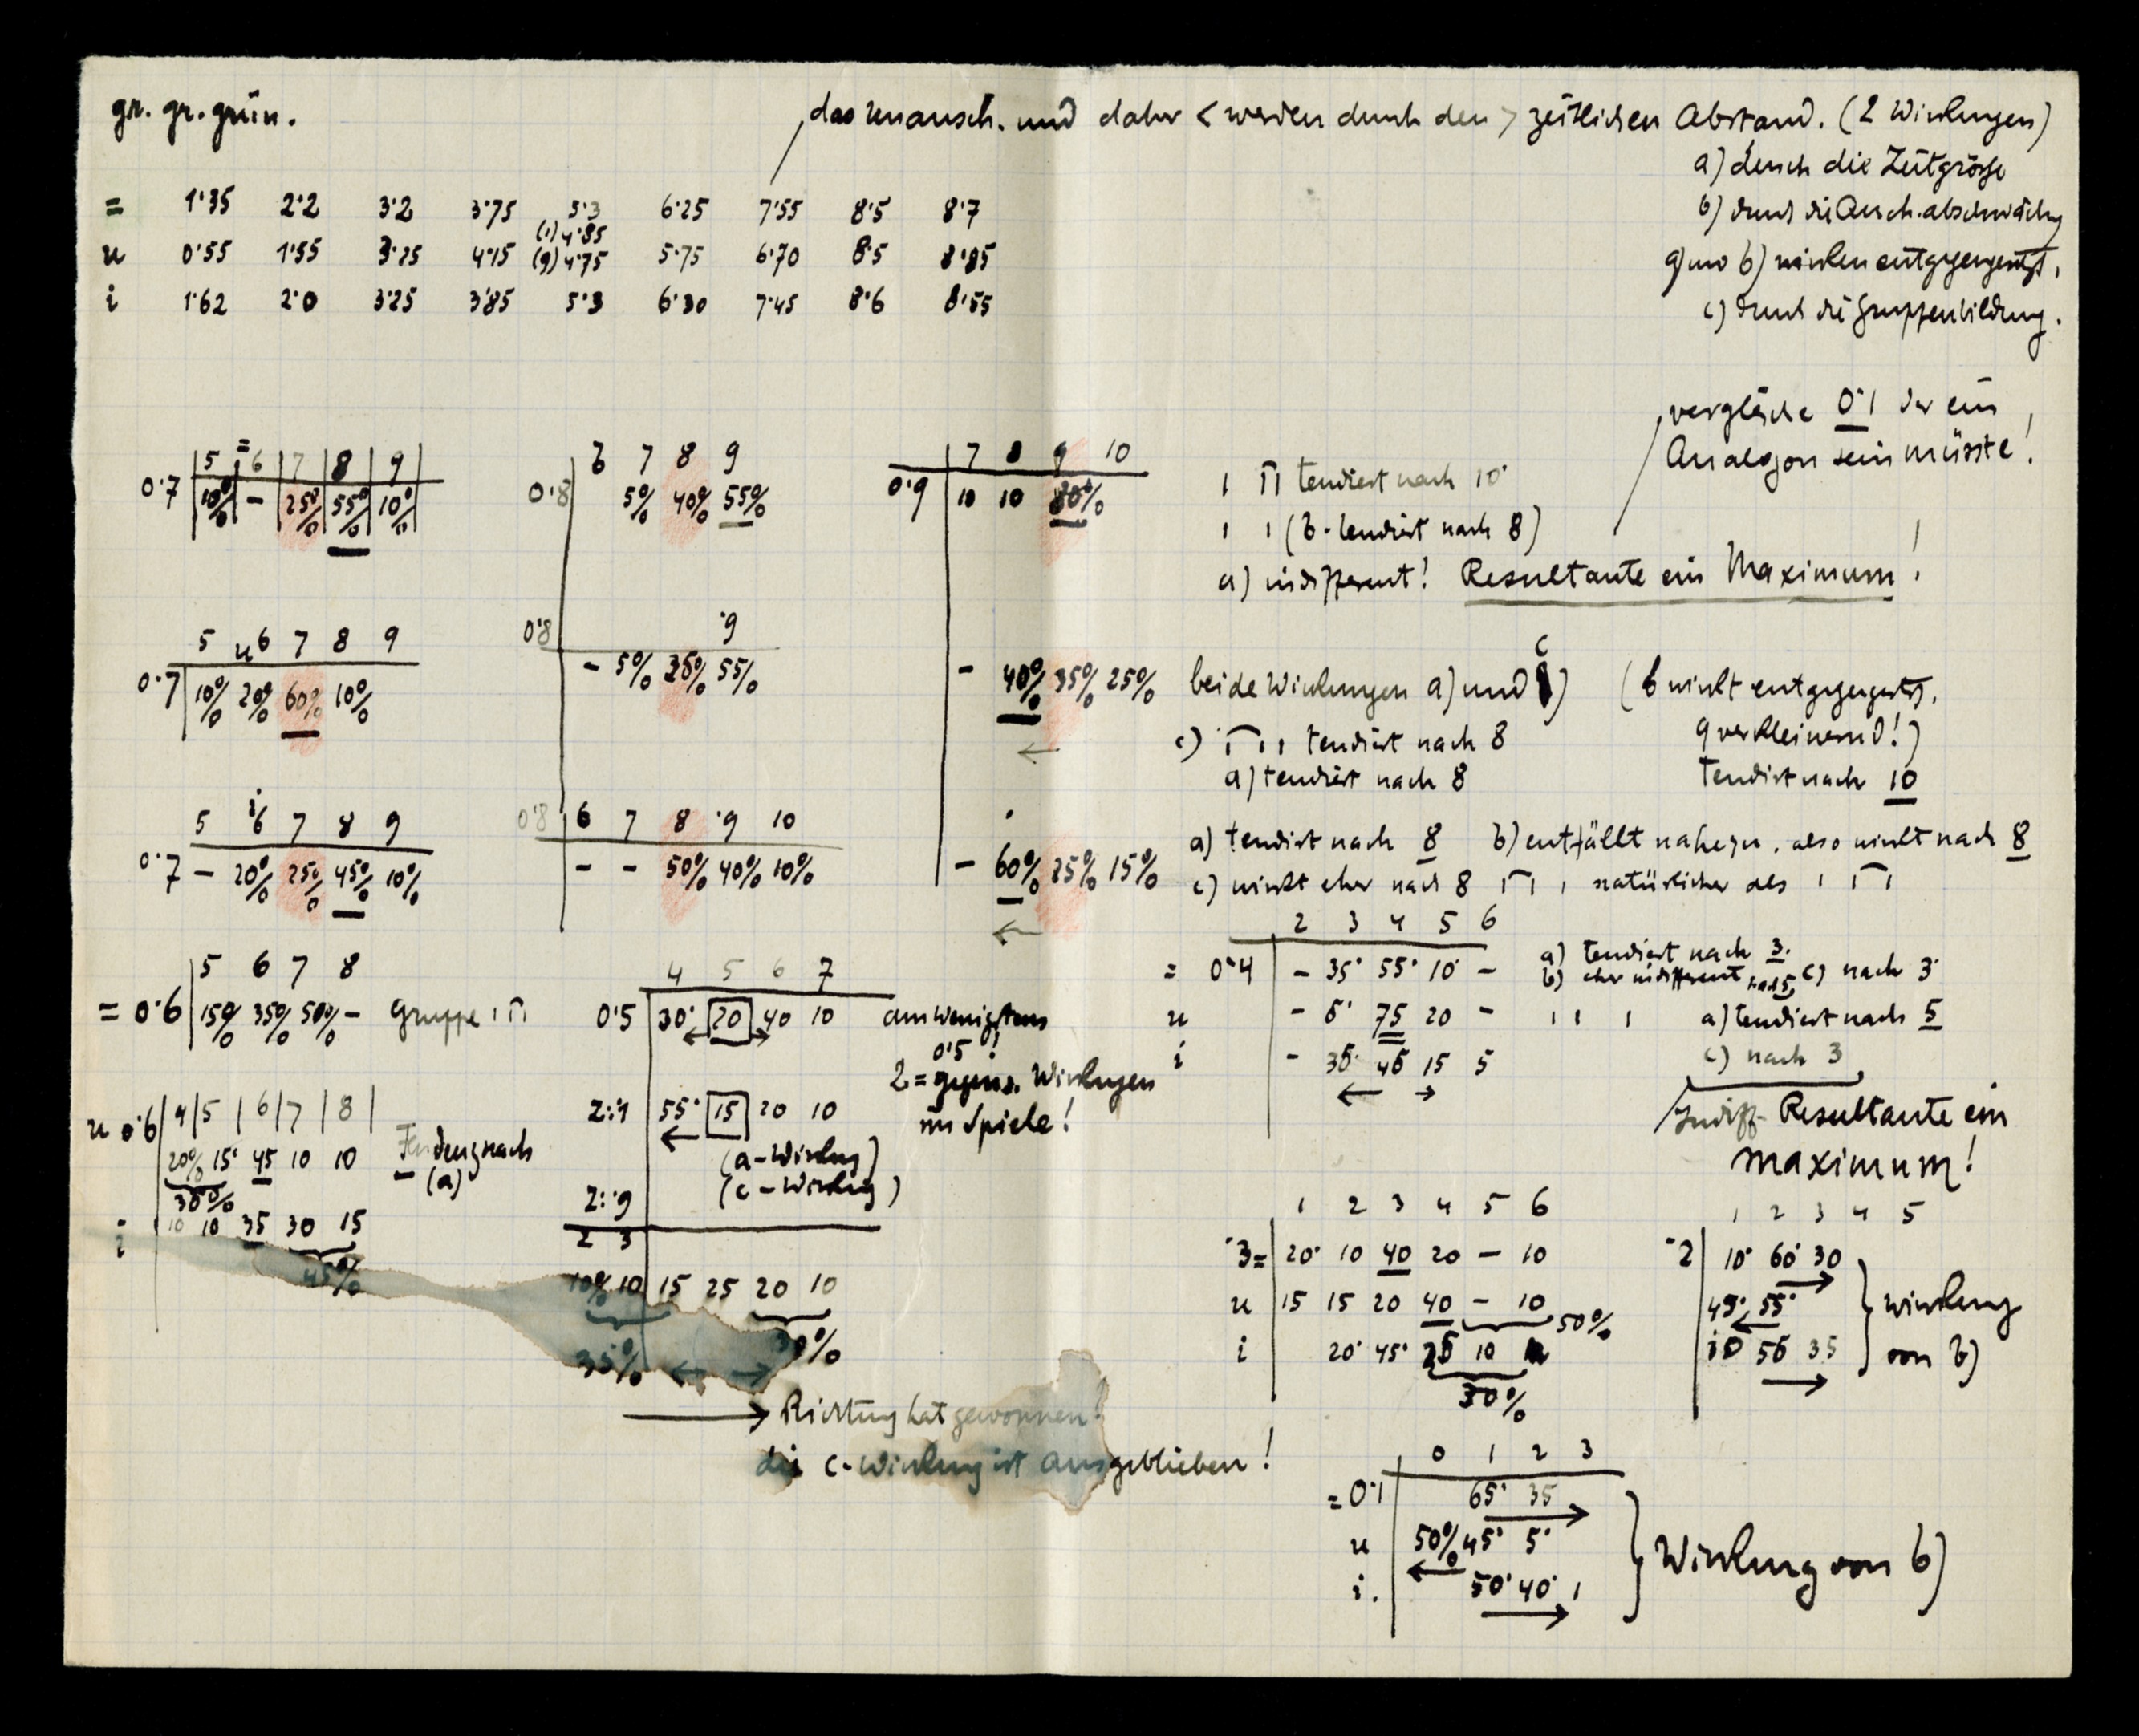 gr. gr. grün.
das unansch. und daher < werden durch den > zeitlichen Abstand. (2 Wirkungen)
a) durch die Zeitgrösse
b) durch die Ansch. abschwächg
a) und b) wirken entgegengesetzt,
c) durch die Gruppenbildung.
= 1·35 2·2 3·2 3·75 5·3 6·25 7·55 8·5 8·7
(i) 4·85
u 0·55 1·55 3·25 4·15 (g) 4·75 5·75 6·70 8·5 8·85
i 1·62 2·0 3·25 3·85 5·3 6·30 7·45 8·6 8·55
vergleiche 0·1 der ein
Analogon sein müsste!
=
5 6 7 8 9
0·7 10% - 25% 55% 10%
6 7 8 9
0·8 5% 40% 55%
7 8 9 10
0·9 10 10 80%
tendiert nach 10·
(b · tendiert nach 8)
a) indifferent! Resultante ein Maximum!
5 u6 7 8 9
0·7 10% 20% 60% 10%
·9
0·8 - 5% 35% 55%
- 40% 35% 25%
←
beide Wirkungen a) und c) (b wirkt entgegenges.
9 verkleinernd!)
c) tendiert nach 8
a) tendiert nach 8
Tendirt nach 10
5 i6 7 8 9
0·7 - 20% 25% 45% 10%
0·8 6 7 8 ·9 10
- - 50% 40% 10%
- 60% 25% 15%
←
a) tendirt nach 8 b) entfällt nahezu, also wirkt nach 8
c) wirkt eher nach 8 natürlicher als
5 6 7 8
= 0·6 15% 35% 50% - Gruppe
4 5 6 7
0·5 30· 20 40 10 am wenigsten
← →
0·5!
2 = gegens. Wirkungen
im Spiele!
2:1 55· 15 20 10
←
(a - Wirkung)
(c - Wirkung)
2 3 4 5 6
= 0·4 - 35· 55· 10· -
a) tendiert nach 3.
b) eher indifferent nach 5, c) nach 3·
u - 5· 75 20 - a) tendiert nach 5
i - 35· 45 15 5 c) nach 3
← →
Indiff- Resultante ein
Maximum!
u 0·6 4 5 6 7 8
20% 15· 45 10 10
35%
Tendenz nach
(a)
i 10 10 35 30 15
45%
2::9
2 3
10% 10 15 25 20 10
35% 30%
← →
→ Richtung hat gewonnen!
die c-Wirkung ist ausgeblieben!
1 2 3 4 5 6
·3= 20· 10 40 20 - 10
u 15 15 20 40 - 10
50%
i 20· 45· 25 10
30%
1 2 3 4 5
·2 10· 60· 30
→
45· 55·
←
10 55 35
→
Wirkung
von b)
0 1 2 3
= 0·1 65· 35
→
u 50% 45· 5·
←
i. 50· 40· 1
→
Wirkung von b)